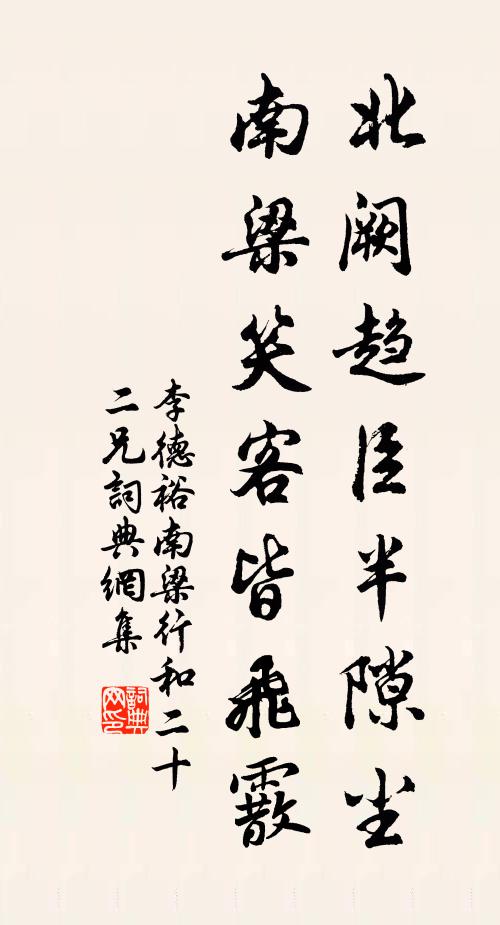 北阙趋臣半隙尘
南梁笑客皆飛霰
李德裕南梁行和二十
二兄詞典網集
詞典网印